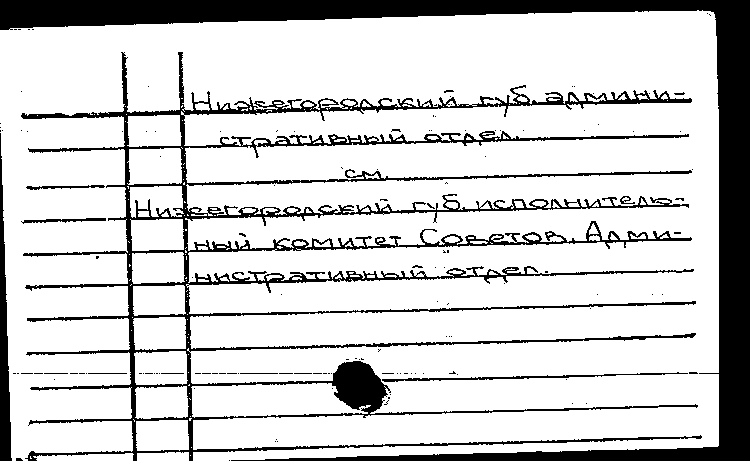 Нижегородский губ. админи-
стративный отдел.
см.
Нижегородский губ. исполнитель-
ный комитет Советов. Адми-
нистративный отдел.